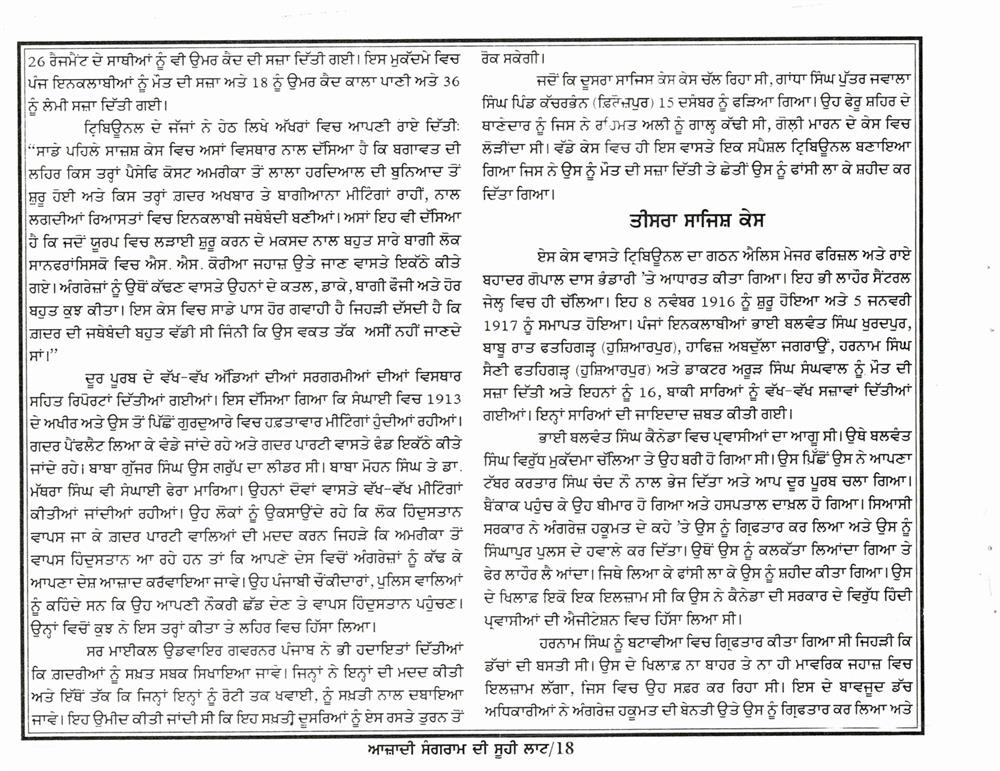 26 ਰੈਜਮੈਂਟ ਦੇ ਸਾਥੀਆਂ ਨੂੰ ਵੀ ਉਮਰ ਕੈਦ ਦੀ ਸਜ਼ਾ ਦਿੱਤੀ ਗਈ। ਇਸ ਮੁਕੱਦਮੇ ਵਿਚ
ਪੰਜ ਇਨਕਲਾਬੀਆਂ ਨੂੰ ਮੌਤ ਦੀ ਸਜ਼ਾ ਅਤੇ 18 ਨੂੰ ਉਮਰ ਕੈਦ ਕਾਲਾ ਪਾਣੀ ਅਤੇ 36
ਨੂੰ ਲੰਮੀ ਸਜ਼ਾ ਦਿੱਤੀ ਗਈ।
ਟ੍ਰਿਬਿਊਨਲ ਦੇ ਜੱਜਾਂ ਨੇ ਹੇਠ ਲਿਖੇ ਅੱਖਰਾਂ ਵਿਚ ਆਪਣੀ ਰਾਏ ਦਿੱਤੀ:
“ਸਾਡੇ ਪਹਿਲੇ ਸਾਜ਼ਸ਼ ਕੇਸ ਵਿਚ ਅਸਾਂ ਵਿਸਥਾਰ ਨਾਲ ਦੱਸਿਆ ਹੈ ਕਿ ਬਗਾਵਤ ਦੀ
ਲਹਿਰ ਕਿਸ ਤਰ੍ਹਾਂ ਪੈਸੇਫਿ ਕੋਸਟ ਅਮਰੀਕਾ ਤੋਂ ਲਾਲਾ ਹਰਦਿਆਲ ਦੀ ਬੁਨਿਆਦ ਤੋਂ
ਸ਼ੁਰੂ ਹੋਈ ਅਤੇ ਕਿਸ ਤਰ੍ਹਾਂ ਗ਼ਦਰ ਅਖਬਾਰ ਤੇ ਬਾਗੀਆਨਾ ਮੀਟਿੰਗਾਂ ਰਾਹੀਂ, ਨਾਲ
ਲਗਦੀਆਂ ਰਿਆਸਤਾਂ ਵਿਚ ਇਨਕਲਾਬੀ ਜਥੇਬੰਦੀ ਬਣੀਆਂ। ਅਸਾਂ ਇਹ ਵੀ ਦੱਸਿਆ
ਹੈ ਕਿ ਜਦੋਂ ਯੂਰਪ ਵਿਚ ਲੜਾਈ ਸ਼ੁਰੂ ਕਰਨ ਦੇ ਮਕਸਦ ਨਾਲ ਬਹੁਤ ਸਾਰੇ ਬਾਗੀ ਲੋਕ
ਸਾਨਫਰਾਂਸਿਸਕੋ ਵਿਚ ਐਸ. ਐਸ. ਕੋਰੀਆ ਜਹਾਜ਼ ਉਤੇ ਜਾਣ ਵਾਸਤੇ ਇਕੱਠੇ ਕੀਤੇ
ਗਏ। ਅੰਗਰੇਜ਼ਾਂ ਨੂੰ ਉਥੋਂ ਕੱਢਣ ਵਾਸਤੇ ਉਹਨਾਂ ਦੇ ਕਤਲ, ਡਾਕੇ, ਬਾਗੀ ਫੌਜੀ ਅਤੇ ਹੋਰ
ਬਹੁਤ ਕੁਝ ਕੀਤਾ। ਇਸ ਕੇਸ ਵਿਚ ਸਾਡੇ ਪਾਸ ਹੋਰ ਗਵਾਹੀ ਹੈ ਜਿਹੜੀ ਦੱਸਦੀ ਹੈ ਕਿ
ਗ਼ਦਰ ਦੀ ਜਥੇਬੰਦੀ ਬਹੁਤ ਵੱਡੀ ਸੀ ਜਿੰਨੀ ਕਿ ਉਸ ਵਕਤ ਤੱਕ ਅਸੀਂ ਨਹੀਂ ਜਾਣਦੇ
ਸਾਂ।”
ਦੂਰ ਪੂਰਬ ਦੇ ਵੱਖ-ਵੱਖ ਅੱਡਿਆਂ ਦੀਆਂ ਸਰਗਰਮੀਆਂ ਦੀਆਂ ਵਿਸਥਾਰ
ਸਹਿਤ ਰਿਪੋਰਟਾਂ ਦਿੱਤੀਆਂ ਗਈਆਂ। ਇਸ ਦੱਸਿਆ ਗਿਆ ਕਿ ਸੰਘਾਈ ਵਿਚ 1913
ਦੇ ਅਖੀਰ ਅਤੇ ਉਸ ਤੋਂ ਪਿੱਛੋਂ ਗੁਰਦੁਆਰੇ ਵਿਚ ਹਫ਼ਤਾਵਾਰ ਮੀਟਿੰਗਾਂ ਹੁੰਦੀਆਂ ਰਹੀਆਂ।
ਗਦਰ ਪੈਂਫਲੈਟ ਲਿਆ ਕੇ ਵੰਡੇ ਜਾਂਦੇ ਰਹੇ ਅਤੇ ਗਦਰ ਪਾਰਟੀ ਵਾਸਤੇ ਫੰਡ ਇਕੱਠੇ ਕੀਤੇ
ਜਾਂਦੇ ਰਹੇ। ਬਾਬਾ ਗੁੱਜਰ ਸਿੰਘ ਉਸ ਗਰੁੱਪ ਦਾ ਲੀਡਰ ਸੀ। ਬਾਬਾ ਮੋਹਨ ਸਿੰਘ ਤੇ ਡਾ.
ਮੱਥਰਾ ਸਿੰਘ ਵੀ ਸੰਘਾਈ ਫੇਰਾ ਮਾਰਿਆ। ਉਹਨਾਂ ਦੋਵਾਂ ਵਾਸਤੇ ਵੱਖ-ਵੱਖ ਮੀਟਿੰਗਾਂ
ਕੀਤੀਆਂ ਜਾਂਦੀਆਂ ਰਹੀਆਂ। ਉਹ ਲੋਕਾਂ ਨੂੰ ਉਕਸਾਉਂਦੇ ਰਹੇ ਕਿ ਲੋਕ ਹਿੰਦੁਸਤਾਨ
ਵਾਪਸ ਜਾ ਕੇ ਗ਼ਦਰ ਪਾਰਟੀ ਵਾਲਿਆਂ ਦੀ ਮਦਦ ਕਰਨ ਜਿਹੜੇ ਕਿ ਅਮਰੀਕਾ ਤੋਂ
ਵਾਪਸ ਹਿੰਦੁਸਤਾਨ ਆ ਰਹੇ ਹਨ ਤਾਂ ਕਿ ਆਪਣੇ ਦੇਸ ਵਿਚੋਂ ਅੰਗਰੇਜ਼ਾਂ ਨੂੰ ਕੱਢ ਕੇ
ਆਪਣਾ ਦੇਸ਼ ਆਜ਼ਾਦ ਕਰਵਾਇਆ ਜਾਵੇ। ਉਹ ਪੰਜਾਬੀ ਚੌਕੀਦਾਰਾਂ, ਪੁਲਿਸ ਵਾਲਿਆਂ
ਨੂੰ ਕਹਿੰਦੇ ਸਨ ਕਿ ਉਹ ਆਪਣੀ ਨੌਕਰੀ ਛੱਡ ਦੇਣ ਤੇ ਵਾਪਸ ਹਿੰਦੁਸਤਾਨ ਪਹੁੰਚਣ।
ਉਨ੍ਹਾਂ ਵਿਚੋਂ ਕੁਝ ਨੇ ਇਸ ਤਰ੍ਹਾਂ ਕੀਤਾ ਤੇ ਲਹਿਰ ਵਿਚ ਹਿੱਸਾ ਲਿਆ।
ਸਰ ਮਾਈਕਲ ਉਡਵਾਇਰ ਗਵਰਨਰ ਪੰਜਾਬ ਨੇ ਭੀ ਹਦਾਇਤਾਂ ਦਿੱਤੀਆਂ
ਕਿ ਗ਼ਦਰੀਆਂ ਨੂੰ ਸਖ਼ਤ ਸਬਕ ਸਿਖਾਇਆ ਜਾਵੇ। ਜਿਨ੍ਹਾਂ ਨੇ ਇਨ੍ਹਾਂ ਦੀ ਮਦਦ ਕੀਤੀ
ਅਤੇ ਇੱਥੋਂ ਤੱਕ ਕਿ ਜਿਨ੍ਹਾਂ ਇਨ੍ਹਾਂ ਨੂੰ ਰੋਟੀ ਤਕ ਖਵਾਈ, ਨੂੰ ਸਖ਼ਤੀ ਨਾਲ ਦਬਾਇਆ
ਜਾਵੇ। ਇਹ ਉਮੀਦ ਕੀਤੀ ਜਾਂਦੀ ਸੀ ਕਿ ਇਹ ਸਖ਼ਤੀ ਦੂਸਰਿਆਂ ਨੂੰ ਏਸ ਰਸਤੇ ਤੁਰਨ ਤੋਂ
ਰੋਕ ਸਕੇਗੀ।
ਜਦੋਂ ਕਿ ਦੂਸਰਾ ਸਾਜਿਸ ਕੇਸ ਕੇਸ ਚੱਲ ਰਿਹਾ ਸੀ, ਗਾਂਧਾ ਸਿੰਘ ਪੁੱਤਰ ਜਵਾਲਾ
ਸਿੰਘ ਪਿੰਡ ਕੱਚਰਭੰਨ (ਫ਼ਿਰੋਜ਼ਪੁਰ) 15 ਦਸੰਬਰ ਨੂੰ ਫੜਿਆ ਗਿਆ। ਉਹ ਫੇਰੂ ਸ਼ਹਿਰ ਦੇ
ਥਾਣੇਦਾਰ ਨੂੰ ਜਿਸ ਨੇ ਰਹਿਮਤ ਅਲੀ ਨੂੰ ਗਾਲ੍ਹ ਕੱਢੀ ਸੀ, ਗੋਲੀ ਮਾਰਨ ਦੇ ਕੇਸ ਵਿਚ
ਲੋੜੀਂਦਾ ਸੀ। ਵੱਡੇ ਕੇਸ ਵਿਚ ਹੀ ਇਸ ਵਾਸਤੇ ਇਕ ਸਪੈਸ਼ਲ ਟ੍ਰਿਬਿਊਨਲ ਬਣਾਇਆ
ਗਿਆ ਜਿਸ ਨੇ ਉਸ ਨੂੰ ਮੌਤ ਦੀ ਸਜ਼ਾ ਦਿੱਤੀ ਤੇ ਛੇਤੀਂ ਉਸ ਨੂੰ ਫਾਂਸੀ ਲਾ ਕੇ ਸ਼ਹੀਦ ਕਰ
ਦਿੱਤਾ ਗਿਆ।
ਤੀਸਰਾ ਸਾਜਿਸ਼ ਕੇਸ
ਏਸ ਕੇਸ ਵਾਸਤੇ ਟ੍ਰਿਬਿਊਨਲ ਦਾ ਗਠਨ ਐਲਿਸ ਮੇਜਰ ਫਰਿਜ਼ਲ ਅਤੇ ਰਾਏ
ਬਹਾਦਰ ਗੋਪਾਲ ਦਾਸ ਭੰਡਾਰੀ ’ਤੇ ਆਧਾਰਤ ਕੀਤਾ ਗਿਆ। ਇਹ ਭੀ ਲਾਹੌਰ ਸੈਂਟਰਲ
ਜੇਲ੍ਹ ਵਿਚ ਹੀ ਚੱਲਿਆ। ਇਹ 8 ਨਵੰਬਰ 1916 ਨੂੰ ਸ਼ੁਰੂ ਹੋਇਆ ਅਤੇ 5 ਜਨਵਰੀ
1917 ਨੂੰ ਸਮਾਪਤ ਹੋਇਆ। ਪੰਜਾਂ ਇਨਕਲਾਬੀਆਂ ਭਾਈ ਬਲਵੰਤ ਸਿੰਘ ਖੁਰਦਪੁਰ,
ਬਾਬੂ ਰਾਤ ਫਤਹਿਗੜ੍ਹ (ਹੁਸ਼ਿਆਰਪੁਰ), ਹਾਫਿਜ਼ ਅਬਦੁੱਲਾ ਜਗਰਾਉਂ, ਹਰਨਾਮ ਸਿੰਘ
ਸੈਣੀ ਫਤਹਿਗੜ੍ਹ (ਹੁਸ਼ਿਆਰਪੁਰ) ਅਤੇ ਡਾਕਟਰ ਅਰੂੜ ਸਿੰਘ ਸੰਘਵਾਲ ਨੂੰ ਮੌਤ ਦੀ
ਸਜ਼ਾ ਦਿੱਤੀ ਅਤੇ ਇਹਨਾਂ ਨੂੰ 16, ਬਾਕੀ ਸਾਰਿਆਂ ਨੂੰ ਵੱਖ-ਵੱਖ ਸਜ਼ਾਵਾਂ ਦਿੱਤੀਆਂ
ਗਈਆਂ। ਇਨ੍ਹਾਂ ਸਾਰਿਆਂ ਦੀ ਜਾਇਦਾਦ ਜ਼ਬਤ ਕੀਤੀ ਗਈ।
ਭਾਈ ਬਲਵੰਤ ਸਿੰਘ ਕੈਨੇਡਾ ਵਿਚ ਪ੍ਰਵਾਸੀਆਂ ਦਾ ਆਗੂ ਸੀ। ਉਥੇ ਬਲਵੰਤ
ਸਿੰਘ ਵਿਰੁੱਧ ਮੁਕੱਦਮਾ ਚੱਲਿਆ ਤੇ ਉਹ ਬਰੀ ਹੋ ਗਿਆ ਸੀ। ਉਸ ਪਿੱਛੋਂ ਉਸ ਨੇ ਆਪਣਾ
ਟੱਬਰ ਕਰਤਾਰ ਸਿੰਘ ਚੰਦ ਨੌ ਨਾਲ ਭੇਜ ਦਿੱਤਾ ਅਤੇ ਆਪ ਦੂਰ ਪੂਰਬ ਚਲਾ ਗਿਆ।
ਬੈਂਕਾਕ ਪਹੁੰਚ ਕੇ ਉਹ ਬੀਮਾਰ ਹੋ ਗਿਆ ਅਤੇ ਹਸਪਤਾਲ ਦਾਖ਼ਲ ਹੋ ਗਿਆ। ਸਿਆਸੀ
ਸਰਕਾਰ ਨੇ ਅੰਗਰੇਜ਼ ਹਕੂਮਤ ਦੇ ਕਹੇ ’ਤੇ ਉਸ ਨੂੰ ਗ੍ਰਿਫਤਾਰ ਕਰ ਲਿਆ ਅਤੇ ਉਸ ਨੂੰ
ਸਿੰਘਾਪੁਰ ਪੁਲਸ ਦੇ ਹਵਾਲੇ ਕਰ ਦਿੱਤਾ। ਉਥੋਂ ਉਸ ਨੂੰ ਕਲਕੱਤਾ ਲਿਆਂਦਾ ਗਿਆ ਤੇ
ਫੇਰ ਲਾਹੌਰ ਲੈ ਆਂਦਾ। ਜਿਥੇ ਲਿਆ ਕੇ ਫਾਂਸੀ ਲਾ ਕੇ ਉਸ ਨੂੰ ਸ਼ਹੀਦ ਕੀਤਾ ਗਿਆ। ਉਸ
ਦੇ ਖਿਲਾਫ਼ ਇਕੋ ਇਕ ਇਲਜ਼ਾਮ ਸੀ ਕਿ ਉਸ ਨੇ ਕੈਨੇਡਾ ਦੀ ਸਰਕਾਰ ਦੇ ਵਿਰੁੱਧ ਹਿੰਦੀ
ਪ੍ਰਵਾਸੀਆਂ ਦੀ ਐਜੀਟੇਸ਼ਨ ਵਿਚ ਹਿੱਸਾ ਲਿਆ ਸੀ।
ਹਰਨਾਮ ਸਿੰਘ ਨੂੰ ਬਟਾਵੀਆ ਵਿਚ ਗ੍ਰਿਫਤਾਰ ਕੀਤਾ ਗਿਆ ਸੀ ਜਿਹੜੀ ਕਿ
ਡੱਚਾਂ ਦੀ ਬਸਤੀ ਸੀ। ਉਸ ਦੇ ਖਿਲਾਫ਼ ਨਾ ਬਾਹਰ ਤੇ ਨਾ ਹੀ ਮਾਵਰਿਕ ਜਹਾਜ਼ ਵਿਚ
ਇਲਜ਼ਾਮ ਲੱਗਾ, ਜਿਸ ਵਿਚ ਉਹ ਸਫ਼ਰ ਕਰ ਰਿਹਾ ਸੀ। ਇਸ ਦੇ ਬਾਵਜੂਦ ਡੱਚ
ਅਧਿਕਾਰੀਆਂ ਨੇ ਅੰਗਰੇਜ਼ ਹਕੂਮਤ ਦੀ ਬੇਨਤੀ ਉਤੇ ਉਸ ਨੂੰ ਗ੍ਰਿਫਤਾਰ ਕਰ ਲਿਆ ਅਤੇ
ਆਜ਼ਾਦੀ ਸੰਗਰਾਮ ਦੀ ਸੂਹੀ ਲਾਟ/18